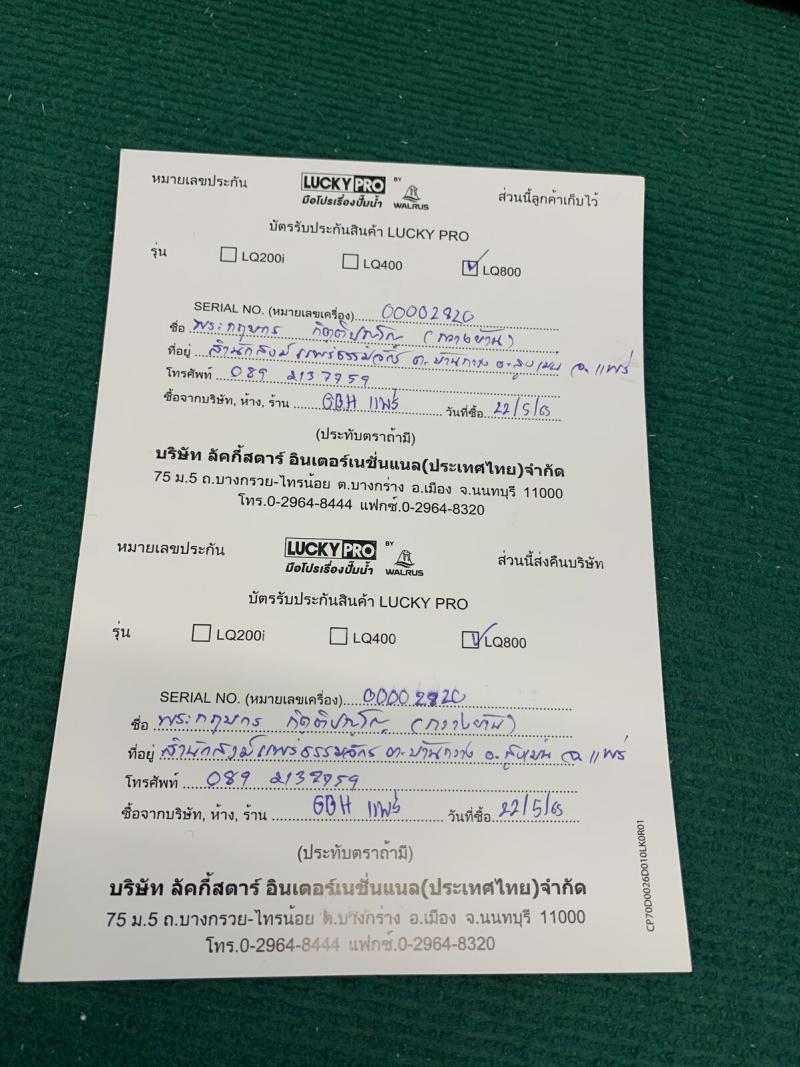 หมายเลขประกัน LUCKY PRO BY WALRUS ส่วนนี้ลูกค้าเก็บไว้
มือโปรเรื่องปั๊มน้ำ
บัตรรับประกันสินค้า LUCKY PRO
รุ่น LQ200i LQ400 LQ800
SERIAL NO. (หมายเลขเครื่อง) 00002920
ชื่อ พระกฤษกร
ที่อยู่ สำนักสงฆ์แพร่ธรรมจักร ต.บ้านกวาง อ.สูงเม่น จ.แพร่
โทรศัพท์ 089 2137759
ซื้อจากบริษัท, ห้าง, ร้าน GBH แพร่ วันที่ซื้อ 22/5/65
(ประทับตราถ้ามี)
บริษัท ลัคกี้สตาร์ อินเตอร์เนชั่นแนล(ประเทศไทย)จำกัด
75 ม.5 ถ.บางกรวย-ไทรน้อย ต.บางกร่าง อ.เมือง จ.นนทบุรี 11000
โทร.0-2964-8444 แฟกซ์.0-2964-8320
หมายเลขประกัน LUCKY PRO BY WALRUS ส่วนนี้ส่งคืนบริษัท
มือโปรเรื่องปั๊มน้ำ
บัตรรับประกันสินค้า LUCKY PRO
รุ่น LQ200i LQ400 LQ800
SERIAL NO. (หมายเลขเครื่อง) 00002920
ชื่อ พระกฤษกร
ที่อยู่ สำนักสงฆ์แพร่ธรรมจักร ต.บ้านกวาง อ.สูงเม่น จ.แพร่
โทรศัพท์ 089 2137759
ซื้อจากบริษัท, ห้าง, ร้าน GBH แพร่ วันที่ซื้อ 22/5/65
(ประทับตราถ้ามี)
บริษัท ลัคกี้สตาร์ อินเตอร์เนชั่นแนล(ประเทศไทย)จำกัด
75 ม.5 ถ.บางกรวย-ไทรน้อย ต.บางกร่าง อ.เมือง จ.นนทบุรี 11000
โทร.0-2964-8444 แฟกซ์.0-2964-8320
CP70D0026D010LK0R01